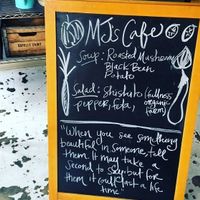 MJs Cafe
Soup: Roasted Mushroom
Black Bean
Potato
Salad: Shishito (fullness
pepper, feta, organic
farm)
"When you see something
beautiful in someone, tell
them. It may take
second to say but for
them it could last a life
time"